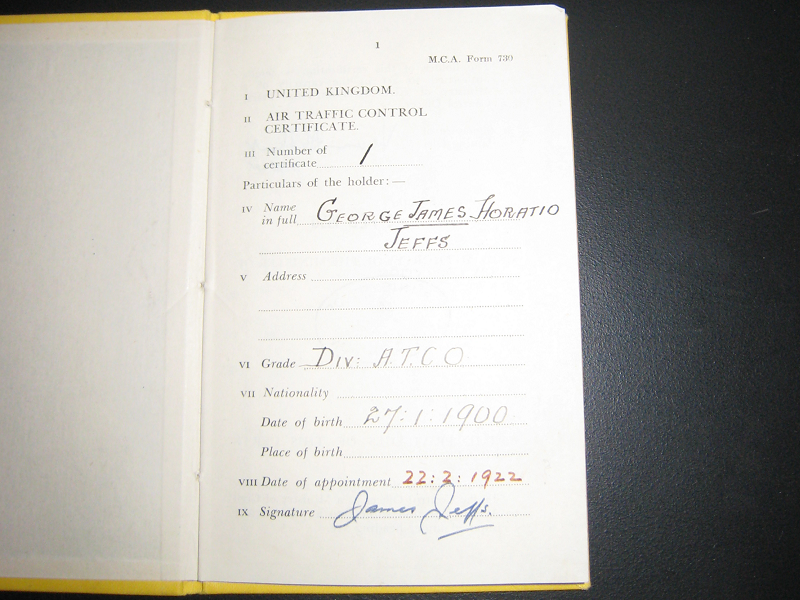 1
M.C.A. Form 739
I UNITED KINGDOM.
II AIR TRAFFIC CONTROL
CERTIFICATE.
III Number of
certificate 1
Particulars of the holder:—
IV Name
in full GEORGE JAMES HORATIO
JEFFS
V Address
VI Grade DIV: A.T.C.O
VII Nationality
Date of birth 27:1:1900
Place of birth
VIII Date of appointment 22:2:1922
IX Signature James Jeffs.